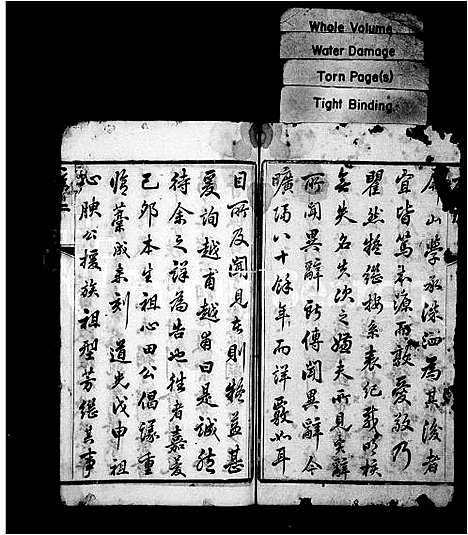 Whole Volume
Water Damage
Torn Page(s)
Tight Binding
山學承洙泗為其後者
宜皆篤本源而敦愛敬乃
瞿然特繼按系表紀載時核
無失名失次之嫌夫所見異辭
所聞異辭所傳聞異辭今
曠隔八十餘年而詳覈如耳
目所及聞見者則特益甚
爰詢越甫越甫曰是誠然
待余之詳為告也往者嘉慶
己卯本生祖心田公倡議重
脩藁成未刻道光戊申祖
心腴公援族祖型芳繼其事